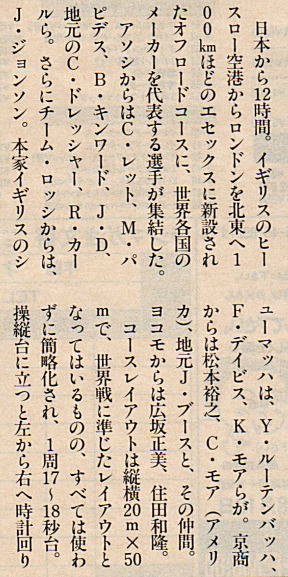 日本から12時間。イギリスのヒー
スロー空港からロンドンを北東へ1
00kmほどのエセックスに新設され
たオフロードコースに、世界各国の
メーカーを代表する選手が集結した。
アソシからはC・レット、M・パ
ピデス、B・キンワード、J・D、
地元のC・ドレッシャー、R・カー
ルら。さらにチーム・ロッシからは、
J・ジョンソン。本家イギリスのシ
ューマッハは、Y・ルーテンバッハ、
F・デイビス、K・モアらが。京商
からは松本裕之、C・モア（アメリ
カ）、地元J・ブースと、その仲間。
ヨコモからは広坂正美、住田和隆。
コースレイアウトは縦横20m×50
mで、世界戦に準じたレイアウトと
なってはいるものの、すべては使わ
ずに簡略化され、1周17〜18秒台。
操縦台に立つと左から右へ時計回り